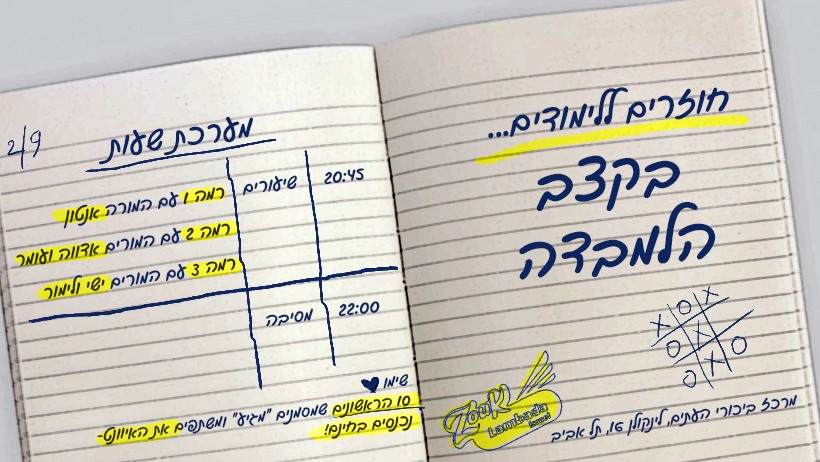 חוזרים ללימודים...
בקצב
הלמבדה
Zouk
Lambada
Israel
מרכז ביכורי העתים, לינקולן 16, תל אביב
2/9
מערכת שעות
20:45 שיעורים רמה 1 עם המורה אנטון
רמה 2 עם המורים אדווה ועומר
רמה 3 עם המורים ישי ולימור
22:00 מסיבה
שימו ♥
10 הראשונים שמסמנים "מגיע" ומשתפים את האיוונט-
נכנסים בחינם!
X O X
O X O
O X